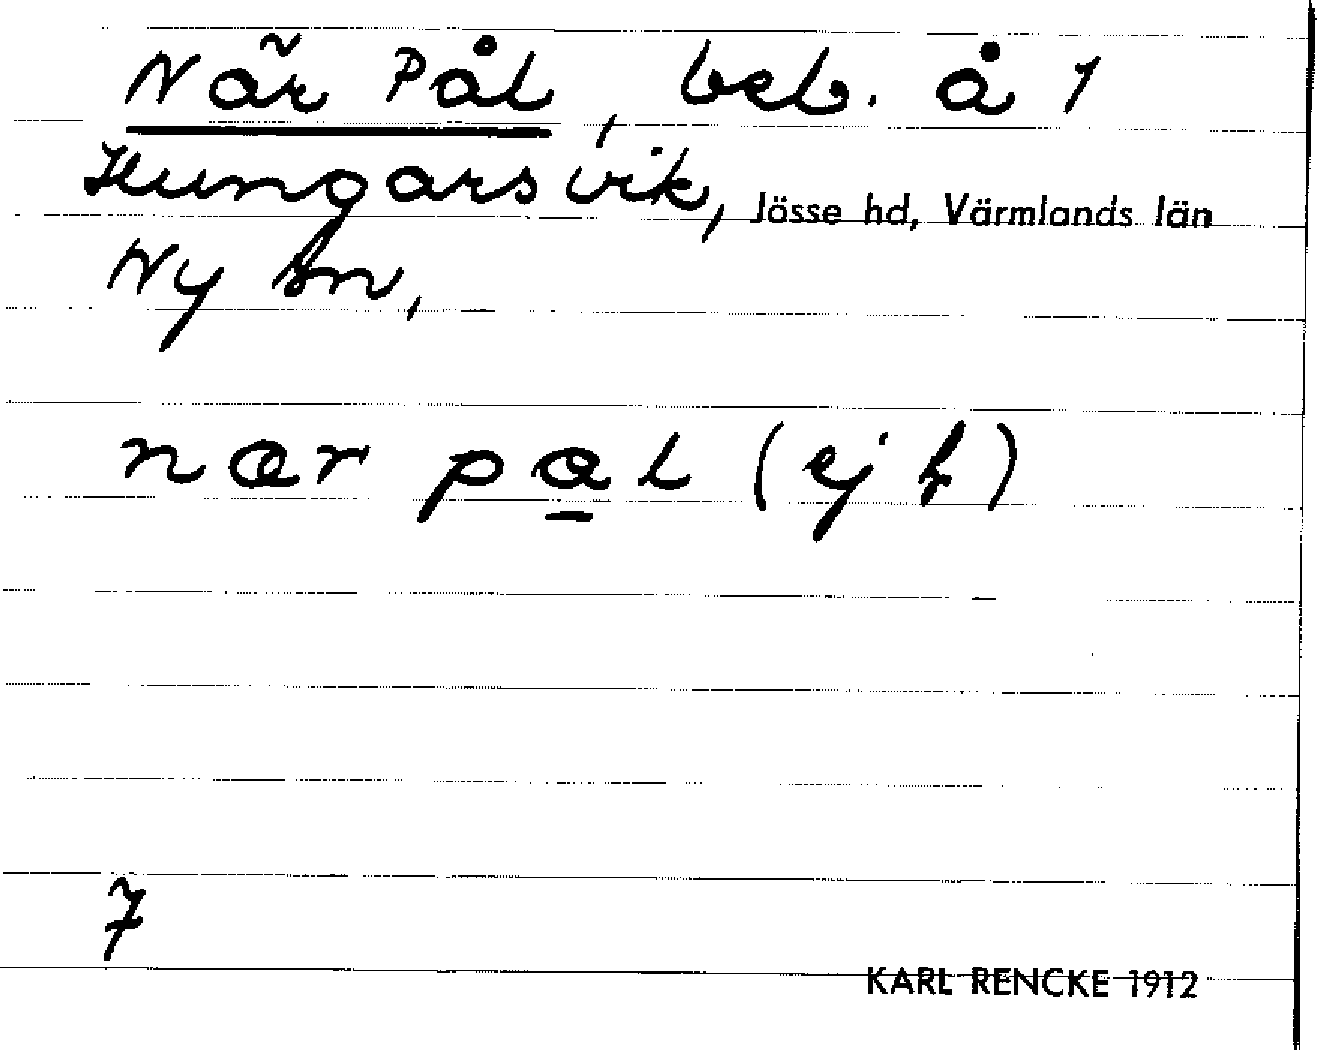 När Pål, beb. å 1
Hungarsvik, Jösse hd, Värmlands län
Ny sn,
nær pal (ej f)
7
KARL RENCKE 1912